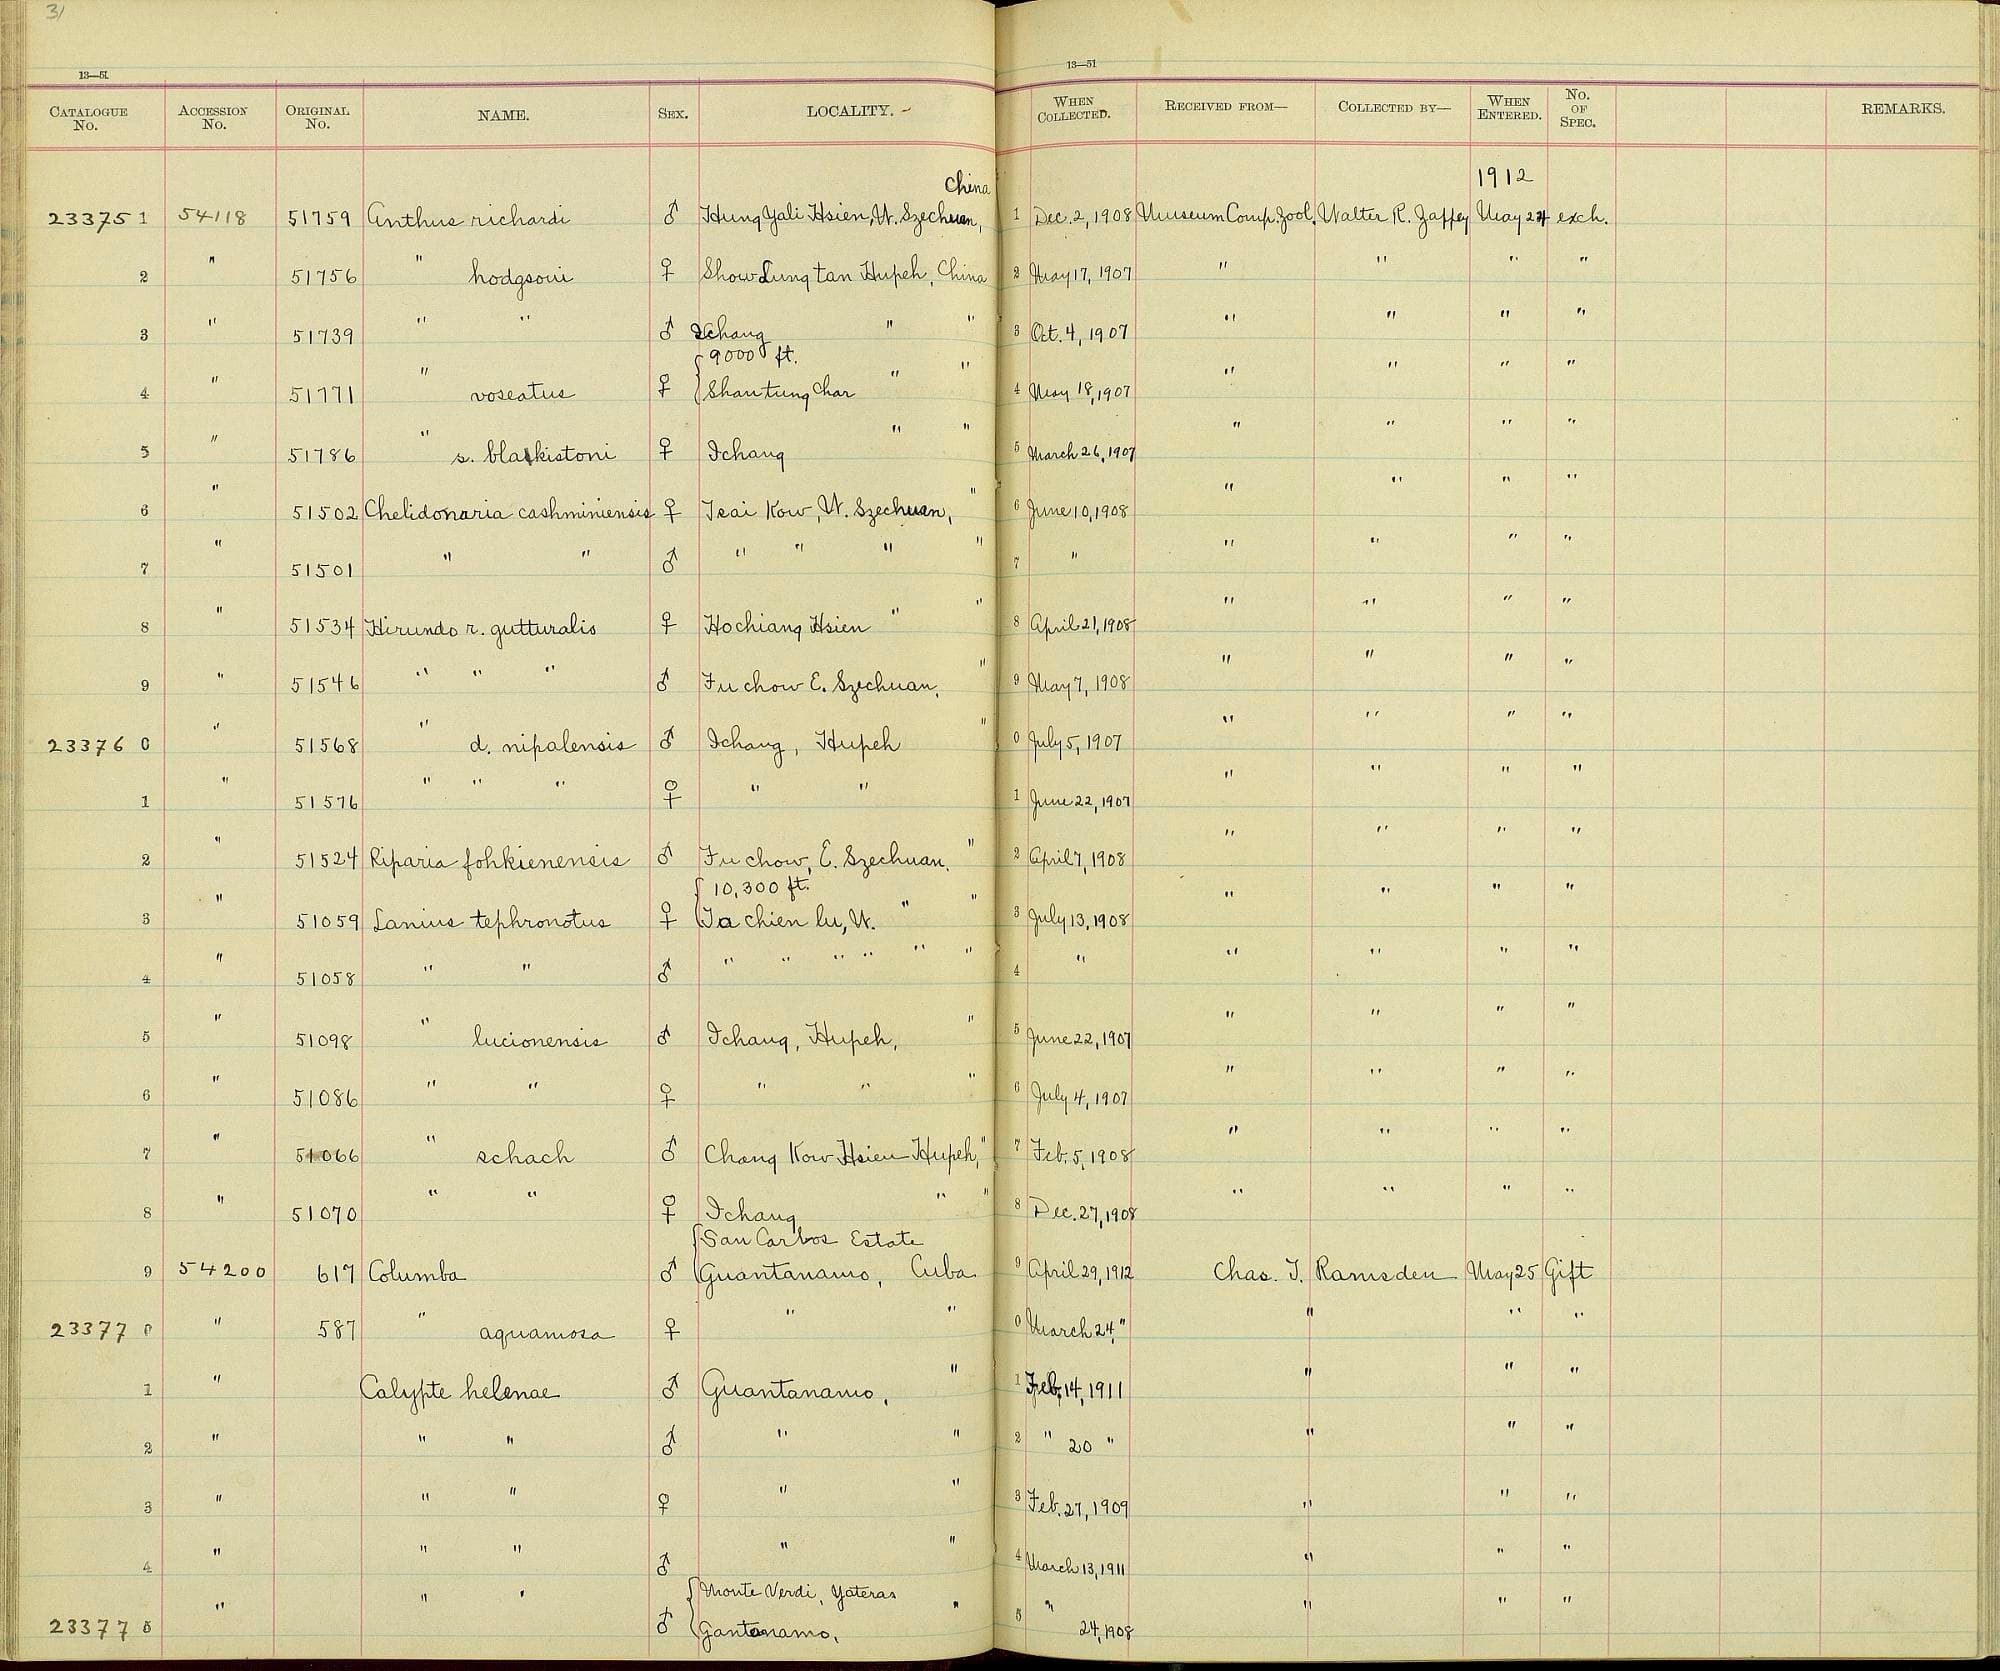 31
13—51
13—51
CATALOGUE No. ACCESSION No. ORIGINAL No. NAME. SEX. LOCALITY. WHEN COLLECTED. RECEIVED FROM— COLLECTED BY— WHEN ENTERED. No. OF SPEC. REMARKS.
China 1912
23375 1 54118 51759 Anthus richardi ♂ Hung Yali Hsien, W. Szechuan, 1 Dec. 2, 1908 Museum Comp. Zool. Walter R. Zappey May 24 exch.
2 " 51756 " hodgsoni ♀ Show Lung tan Hupeh, China 2 May 17, 1907 " " " "
3 " 51739 " " ♂ Ichang " " 3 Oct. 4, 1907 " " " "
{9000 ft.
4 " 51771 " roseatus ♀ Shautung Char " " 4 May 18, 1907 " " " "
5 " 51786 " s. blakistoni ♀ Ichang " " 5 March 26, 1907 " " " "
6 " 51502 Chelidonaria cashminiensis ♀ Tsai Kow, W. Szechuan, " 6 June 10, 1908 " " " "
7 " 51501 " " ♂ " " " " 7 " " " " "
8 " 51534 Hirundo r. gutturalis ♀ Hochiang Hsien " " 8 April 21, 1908 " " " "
9 " 51546 " " " ♂ Fu chow E. Szechuan, " 9 May 7, 1908 " " " "
23376 0 " 51568 " d. nipalensis ♂ Ichang, Hupeh " 0 July 5, 1907 " " " "
1 " 51576 " " " ♀ " " 1 June 22, 1907 " " " "
2 " 51524 Riparia fohkienensis ♂ Fu chow, E. Szechuan. " 2 April 7, 1908 " " " "
{10,300 ft.
3 " 51059 Lanius tephronotus ♀ Ta chien lu, W. " " 3 July 13, 1908 " " " "
4 " 51058 " " ♂ " " " " " " 4 " " " " "
5 " 51098 " lucionensis ♂ Ichang, Hupeh, " 5 June 22, 1907 " " " "
6 " 51086 " " ♀ " " " 6 July 4, 1907 " " " "
7 " 51066 " schach ♂ Chang Kow Hsien Hupeh, " 7 Feb. 5, 1908 " " " "
8 " 51070 " " ♀ Ichang " " 8 Dec. 27, 1908 " " " "
{San Carlos Estate
9 54200 617 Columba ♂ Guantanamo, Cuba 9 April 29, 1912 Chas. T. Ramsden May 25 Gift
23377 0 " 587 " aquamosa ♀ " " 0 March 24, " " " "
1 " Calypte helenae ♂ Guantanamo, " 1 Feb. 14, 1911 " " "
2 " " " ♂ " " 2 " 20 " " " "
3 " " " ♀ " " 3 Feb. 27, 1909 " " "
4 " " " ♂ " " 4 March 13, 1911 " " "
{Monte Verdi, Yateras
23377 5 " " " ♂ Gantanamo, " 5 " 24, 1908 " " "